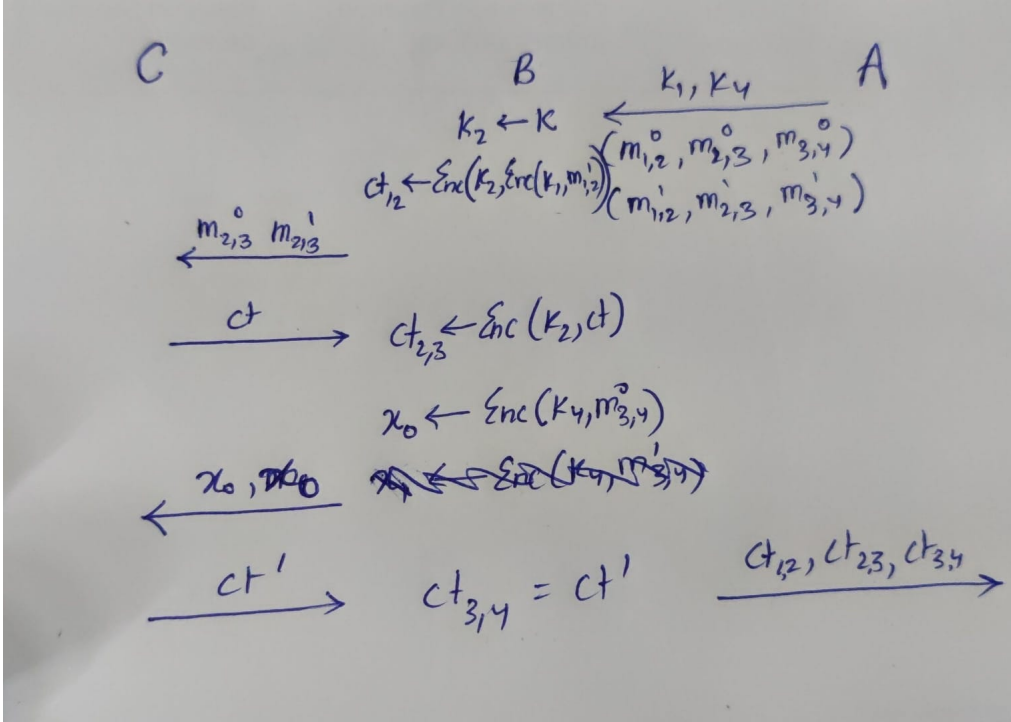 C B A
k₁, k₄
k₂ ← K
(m⁰₁,₂, m⁰₂,₃, m⁰₃,₄)
ct₁,₂ ← Enc(k₂, Enc(k₁, m¹₁,₂))
(m¹₁,₂, m¹₂,₃, m¹₃,₄)
m⁰₂,₃ m¹₂,₃
ct
ct₂,₃ ← Enc(k₂, ct)
x₀ ← Enc(k₄, m⁰₃,₄)
x₀, x₀
ct'
ct₃,₄ = ct'
ct₁,₂, ct₂,₃, ct₃,₄